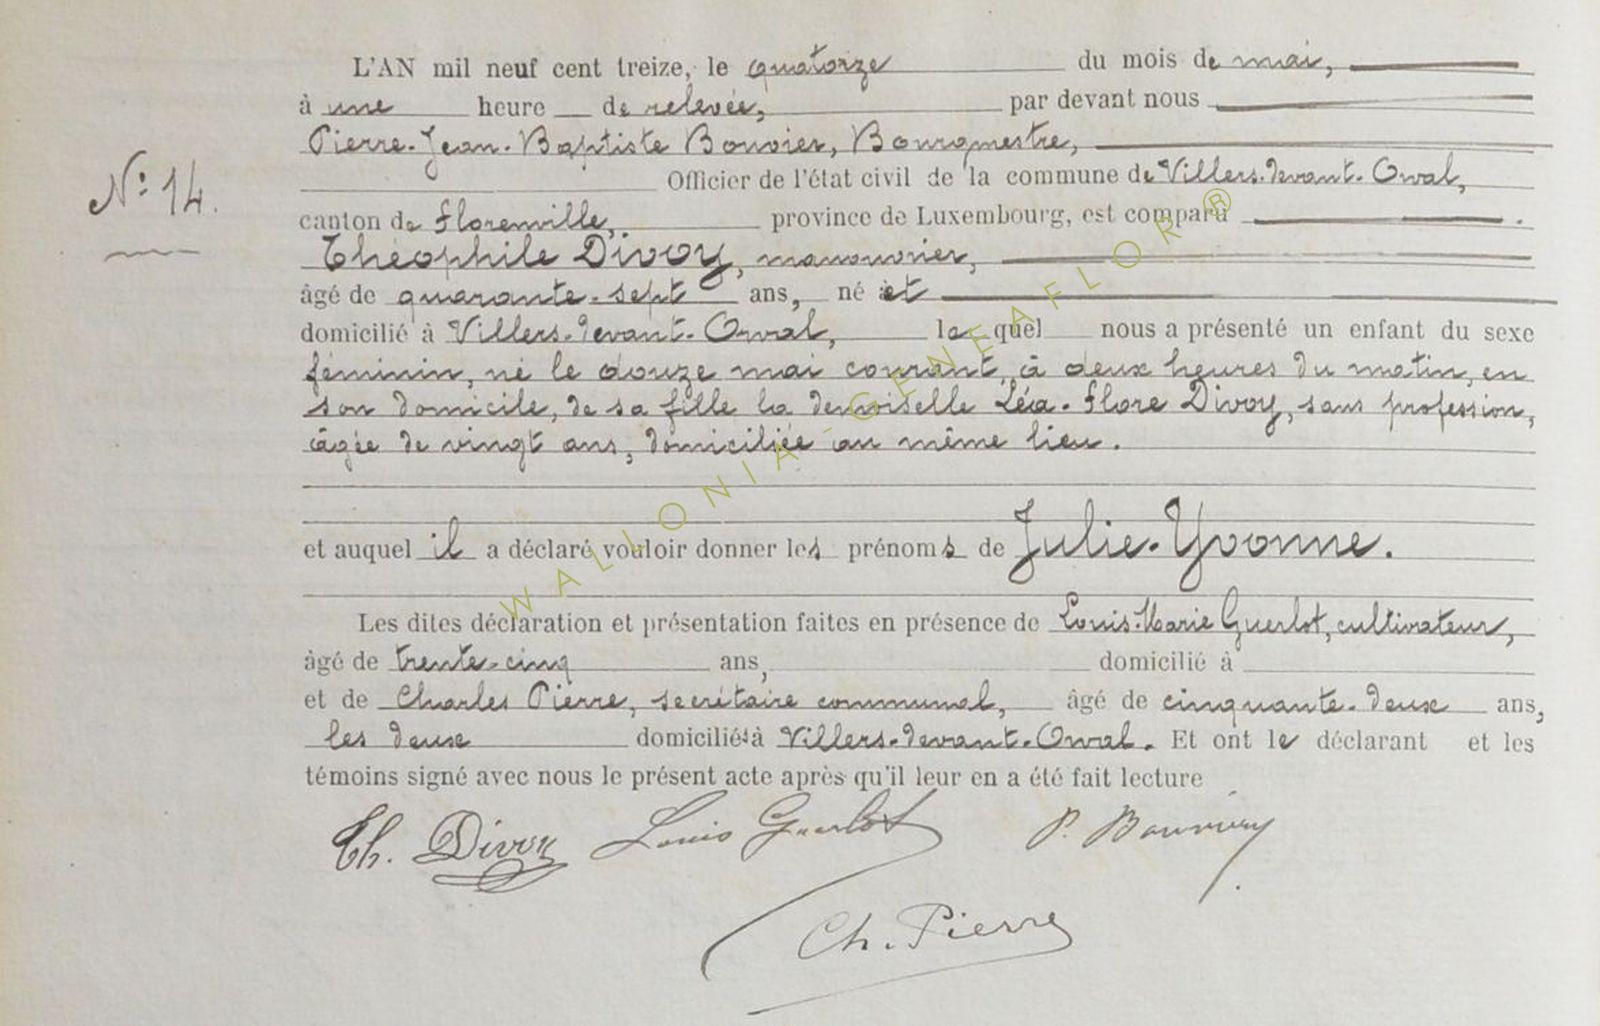 L'AN mil neuf cent treize, le quatorze du mois de mai,
à une heure de relevée, par devant nous
Pierre-Jean-Baptiste Bouvier, Bourgmestre,
N° 14.
Officier de l'état civil de la commune de Villers-devant-Orval,
canton de Florenville, province de Luxembourg, est comparu
Théophile Divoy, manouvrier,
âgé de quarante-sept ans, né et
domicilié à Villers-devant-Orval, lequel nous a présenté un enfant du sexe
féminin, né le douze mai courant, à deux heures du matin, en
son domicile, de sa fille la demoiselle Léa-Flore Divoy, sans profession,
âgée de vingt ans, domiciliée au même lieu.
et auquel il a déclaré vouloir donner les prénoms de Julie-Yvonne.
Les dites déclaration et présentation faites en présence de Louis-Marie Guerlot, cultivateur,
âgé de trente-cinq ans, domicilié à
et de Charles Pierre, secrétaire communal, âgé de cinquante-deux ans,
les deux domiciliés à Villers-devant-Orval. Et ont le déclarant et les
témoins signé avec nous le présent acte après qu'il leur en a été fait lecture
Th. Divoy Louis Guerlot P. Bouvier
Ch. Pierre
WALLONIA-GENEAFLOR ®